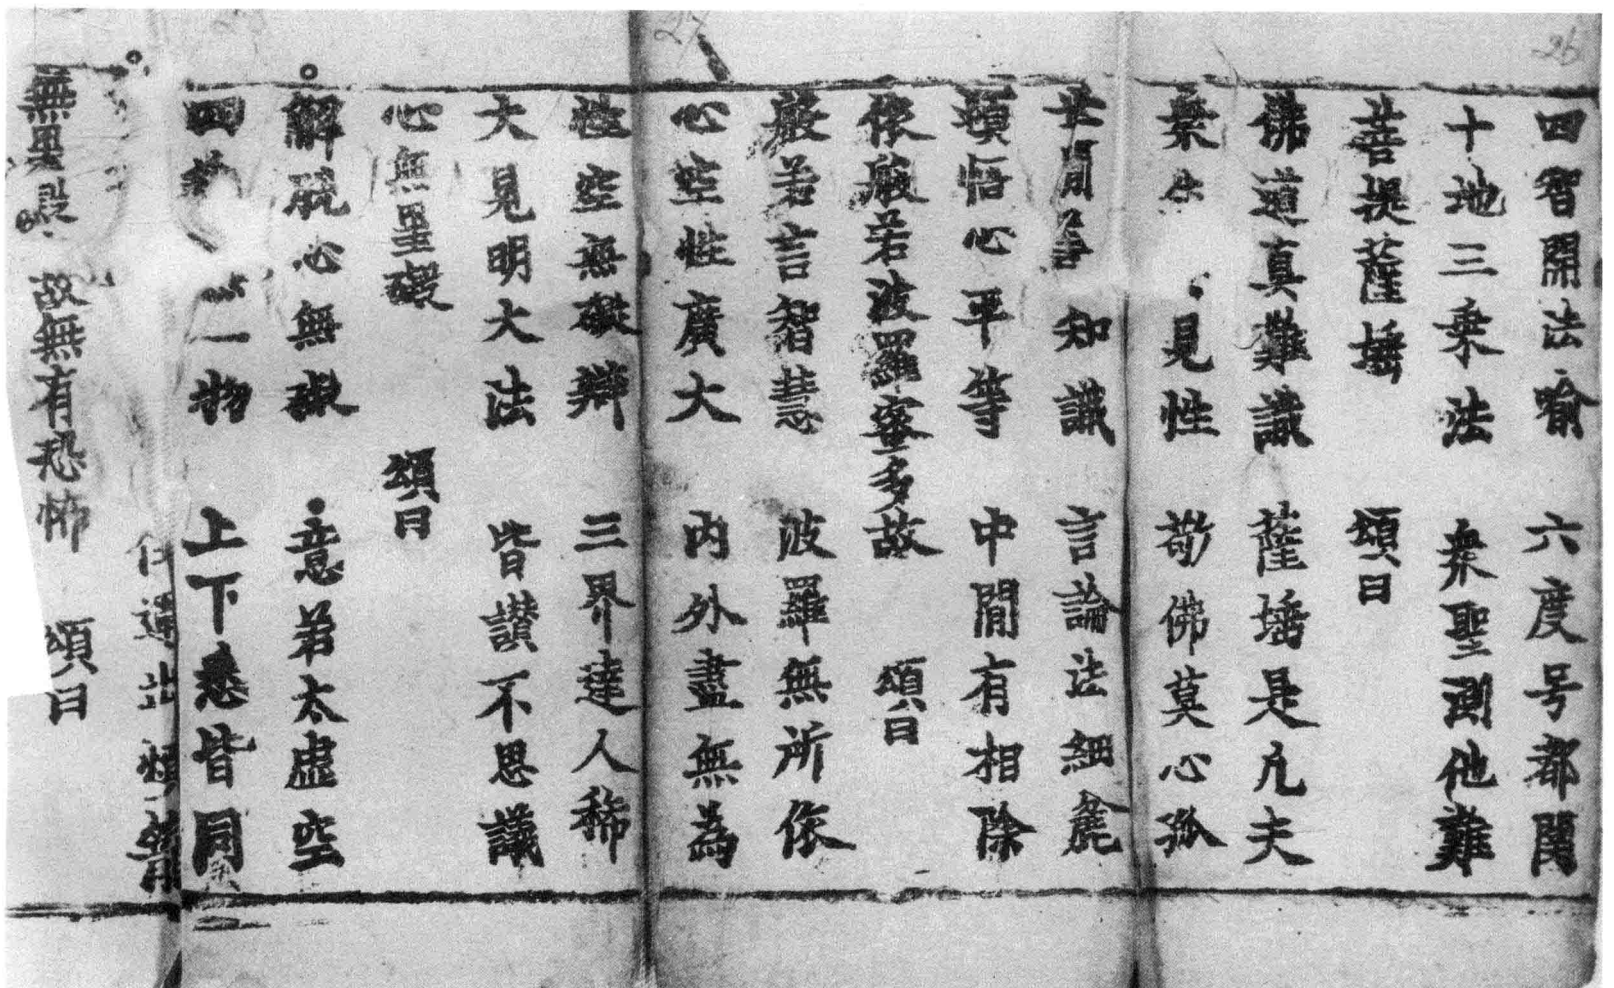 26
四智開法喻 六度号都関
十地三乗法 衆聖測他難
菩提薩埵 頌曰
佛道真難識 薩埵是凡夫
衆生 見性 敬佛莫心孤
世間善知識 言論法細麁
頓悟心平等 中間有相除
依般若波羅蜜多故 頌曰
般若言智慧 波羅無所依
27
心空性廣大 内外盡無為
性空無礙辯 三界達人稀
大見明大法 皆讃不思議
心無罣礙 頌曰
解脱心無礙 意若太虚空
四 一物 上下悉皆同
無罣礙 故無有恐怖 頌曰